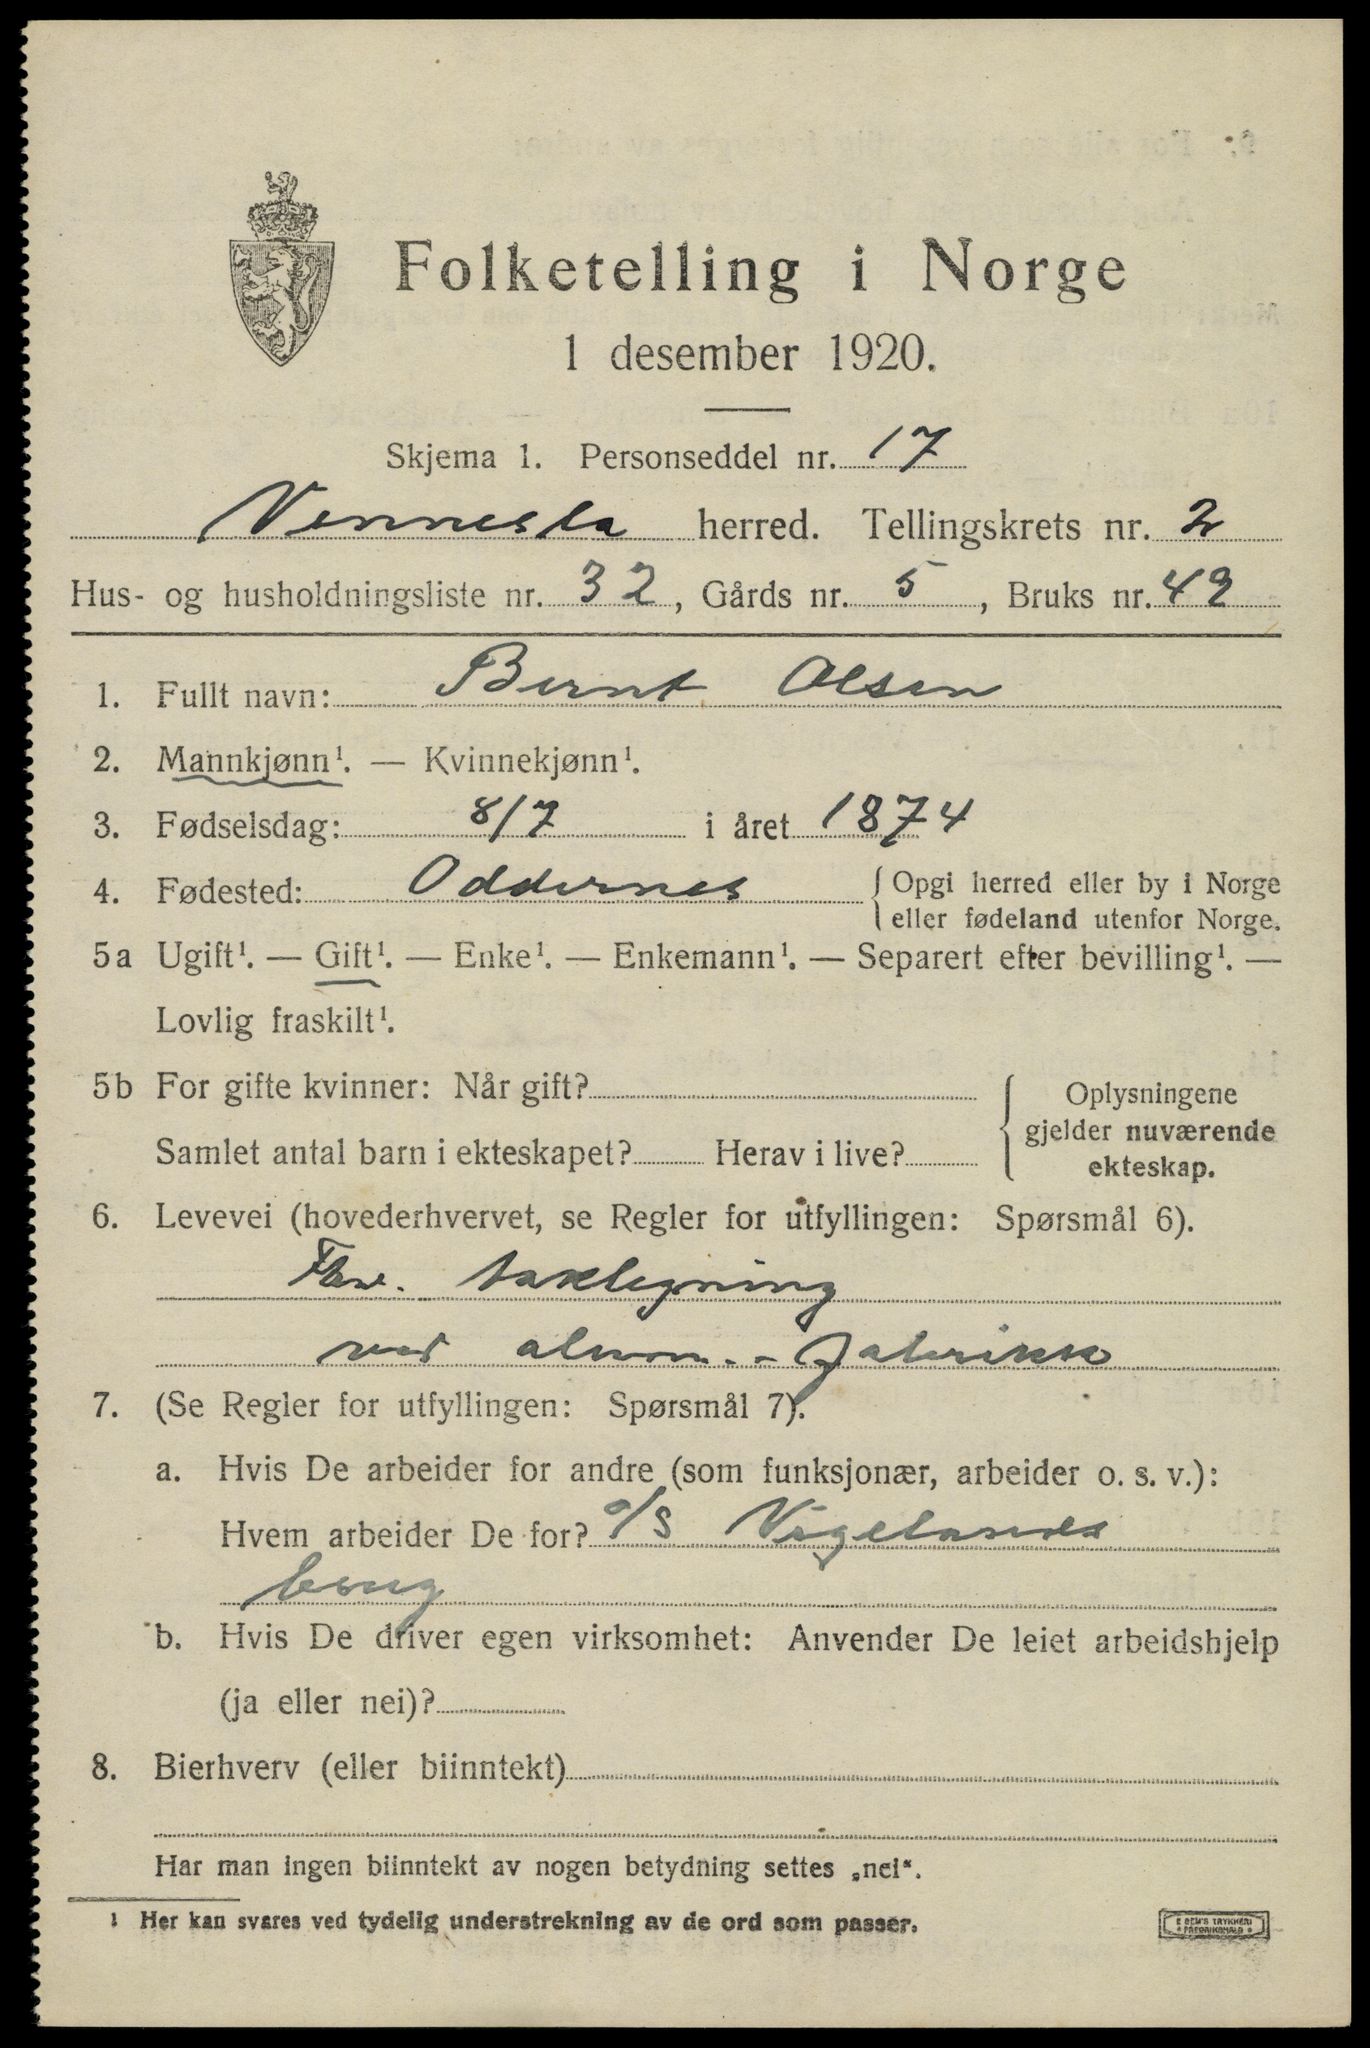 Folketelling i Norge
1 desember 1920.
Skjema 1. Personseddel nr. 17
Vennesla herred. Tellingskrets nr. 2
Hus- og husholdningsliste nr. 32, Gårds nr. 5, Bruks nr. 49
1. Fullt navn: Bernt Olsen
2. Mannkjønn¹. — Kvinnekjønn¹.
3. Fødselsdag: 8/7 i året 1874
4. Fødested: Oddernes {Opgi herred eller by i Norge
eller fødeland utenfor Norge.
5a Ugift¹. — Gift¹. — Enke¹. — Enkemann¹. — Separert efter bevilling¹. —
Lovlig fraskilt¹.
5b For gifte kvinner: Når gift? { Oplysningene
gjelder nuværende
ekteskap.
Samlet antal barn i ekteskapet? Herav i live?
6. Levevei (hovederhvervet, se Regler for utfyllingen: Spørsmål 6).
ved alum.-fabrikk
7. (Se Regler for utfyllingen: Spørsmål 7).
a. Hvis De arbeider for andre (som funksjonær, arbeider o. s. v.):
Hvem arbeider De for? a/s Vigelands
brug
b. Hvis De driver egen virksomhet: Anvender De leiet arbeidshjelp
(ja eller nei)?
8. Bierhverv (eller biinntekt)
Har man ingen biinntekt av nogen betydning settes „nei“.
1 Her kan svares ved tydelig understrekning av de ord som passer.
E SEM'S TRYKKERI
FREDRIKSHALD